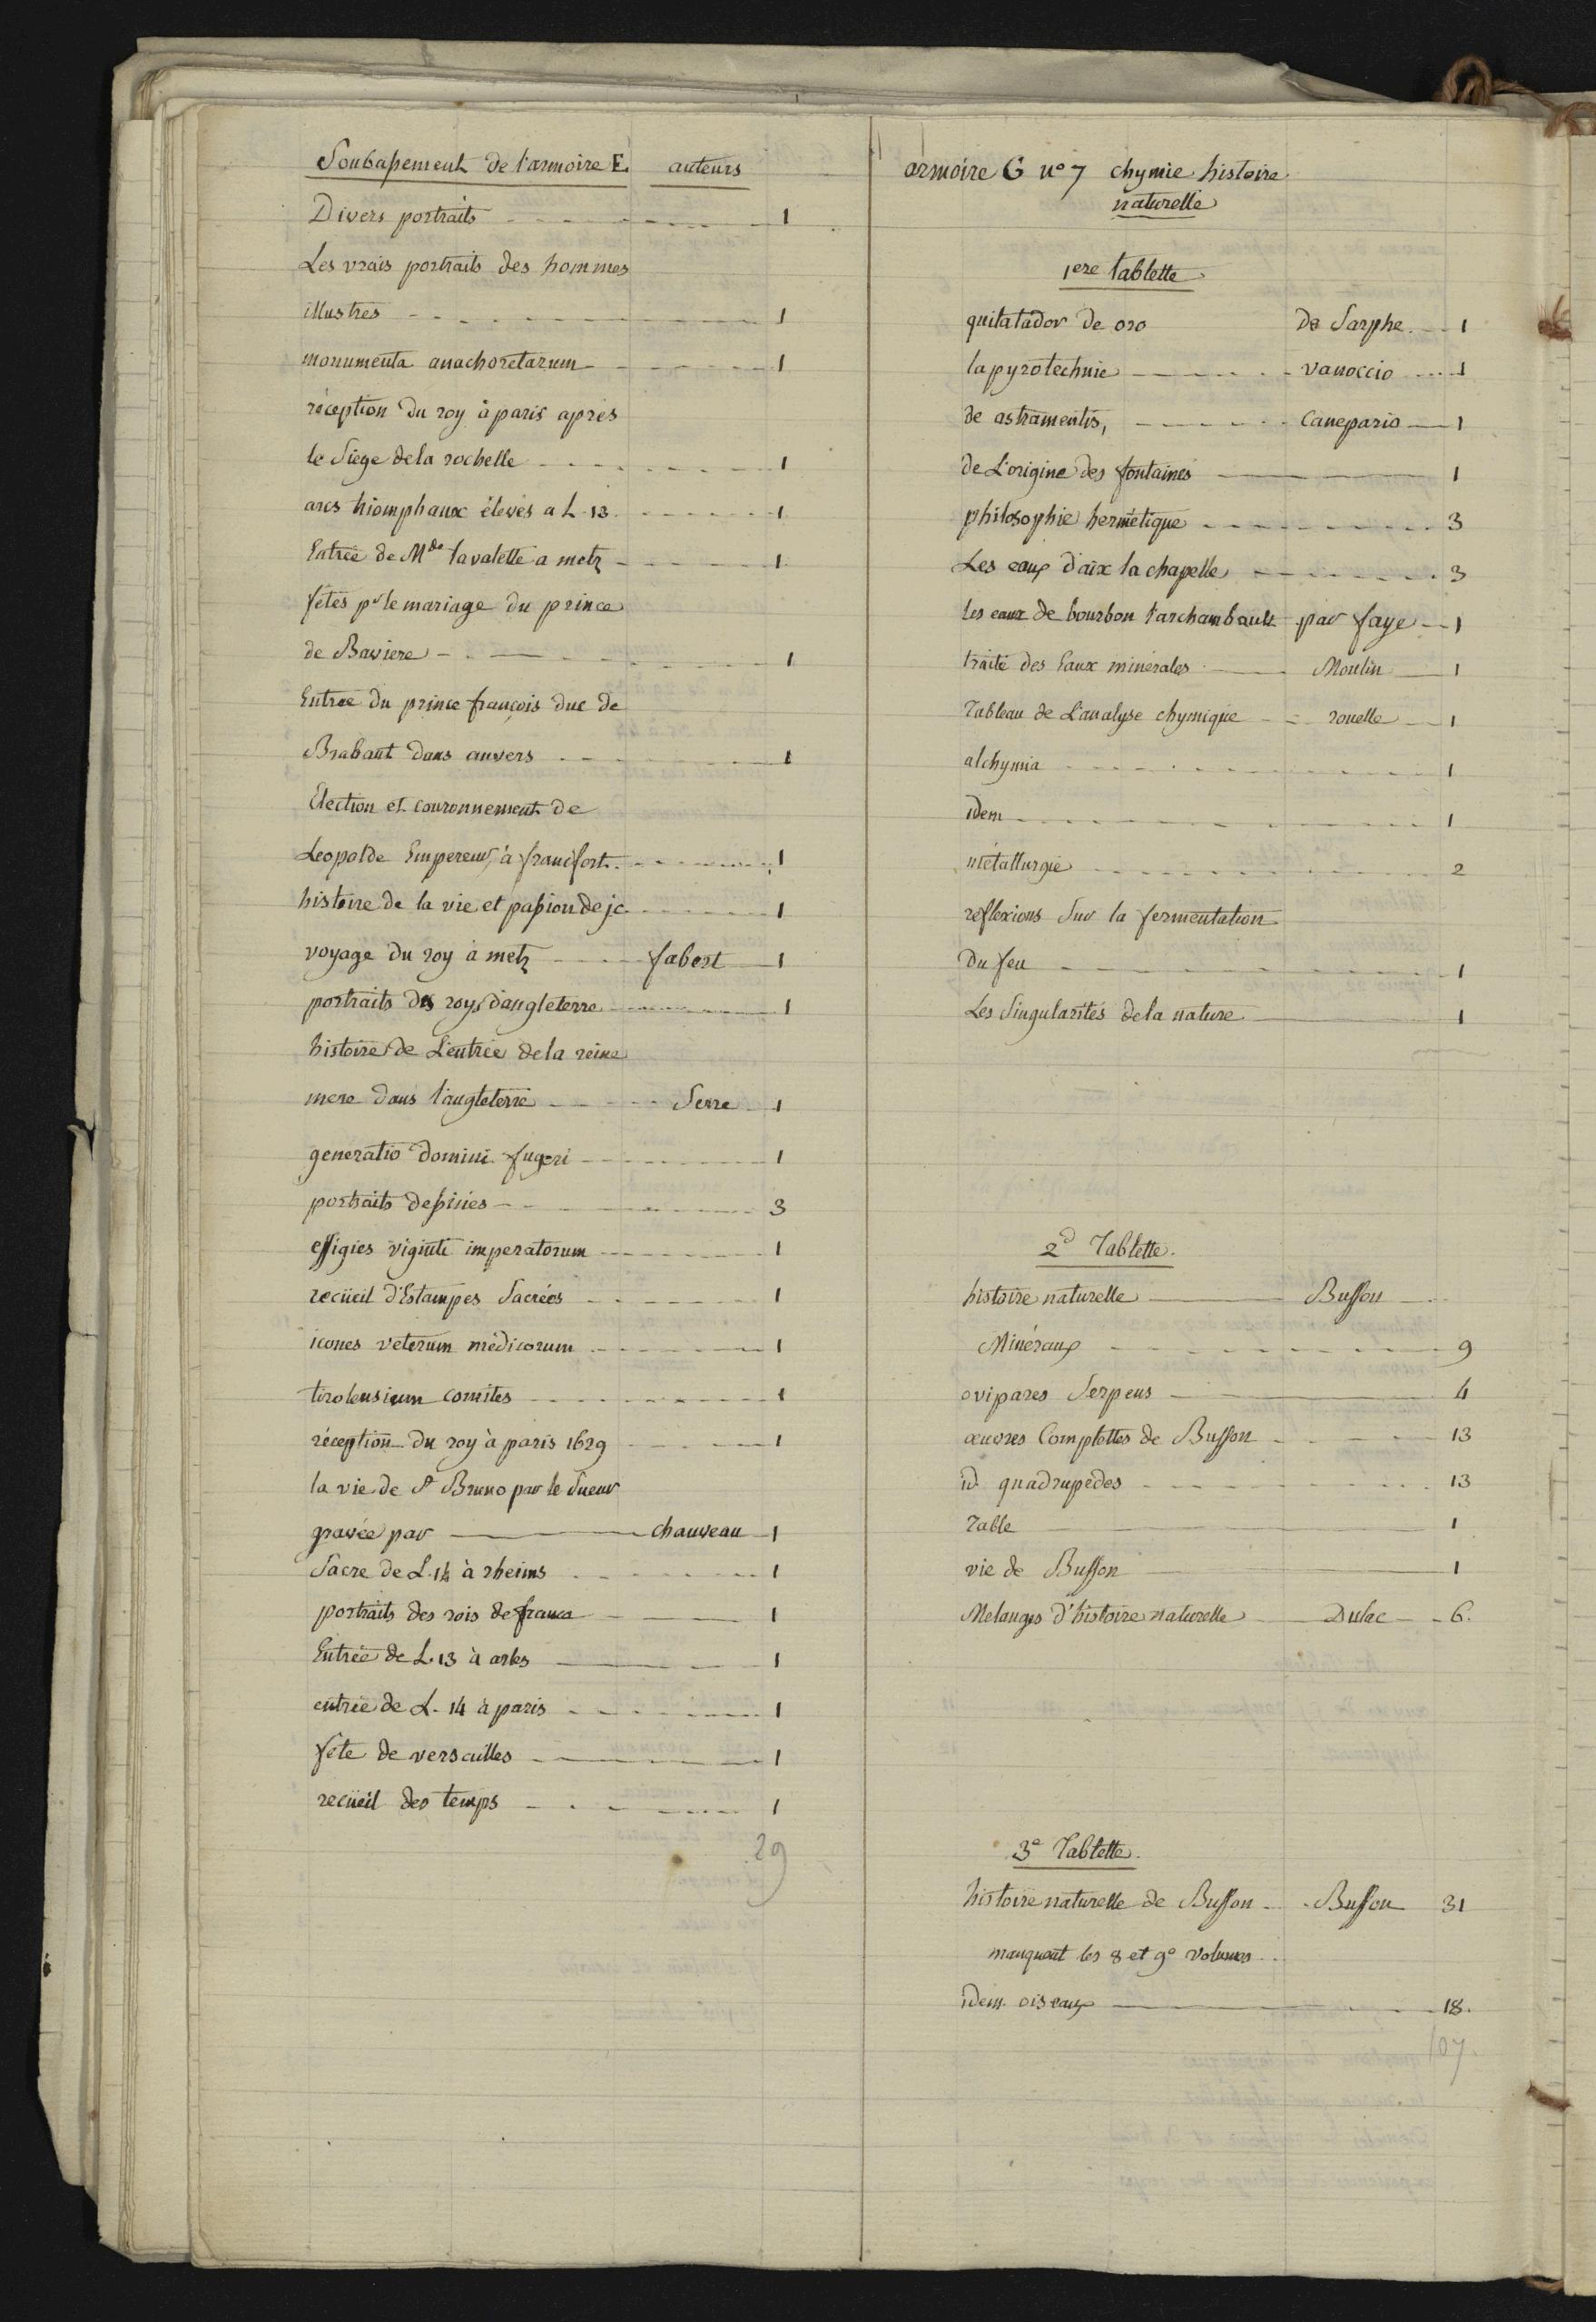 Soubassement de l'armoire E auteurs
Divers portraits 1
Les vrais portraits des hommes
illustres 1
monumenta anachoretarum 1
réception du roy à paris apres
le Siege dela rochelle 1
arcs triomphaux élevés a L. 13 1
Entrée de Mde lavalette a metz 1
fêtes pr le mariage du prince
de Baviere 1
Entree du prince françois duc de
Brabant dans anvers 1
Election et couronnement de
Leopolde Empereur, à francfort 1
histoire de la vie et passion de jc 1
voyage du roy à metz fabert 1
portraits des roys d'angleterre 1
histoire de L'entrée dela reine
mere dans l'angleterre Serre 1
generatio domini fugeri 1
portraits dessinés 3
effigies viginti imperatorum 1
recüeil d'Estampes Sacrées 1
icones veterum médicorum 1
tirolensium comites 1
réception du roy à paris 1629 1
la vie de St Bruno par le Sueur
gravée par chauveau 1
Sacre de L. 14 à rheims 1
portraits des rois de france 1
Entrée de L. 13 à arles 1
entrée de L. 14 à paris 1
fête de versailles 1
recüeil des temps 1
29
armoire G no 7 chymie histoire
naturelle
1ere tablette
quitatador de oro de Sarphe 1
la pyrotechnie vanoccio 1
de astramentis, Canepario 1
de L'origine des fontaines 1
philosophie hermétique 3
Les eaux d'aix la chapelle 3
les eaux de bourbon l'archambault par faye 1
traité des Eaux minérales Moulin 1
Tableau de L'analyse chymique rouelle 1
alchymia 1
idem 1
métallurgie 2
reflexions Sur la fermentation
du feu 1
Les Singularités dela nature 1
2d Tablette.
histoire naturelle Buffon
Minéraux 9
ovipares Serpens 4
œuvres Complettes de Buffon 13
id quadrupèdes 13
Table 1
vie de Buffon 1
Melanges d'histoire naturelle Dulac 6.
3e Tablette.
histoire naturelle de Buffon Buffon 31
manquent les 8 et 9e volumes
idem. oiseaux 18.
107.